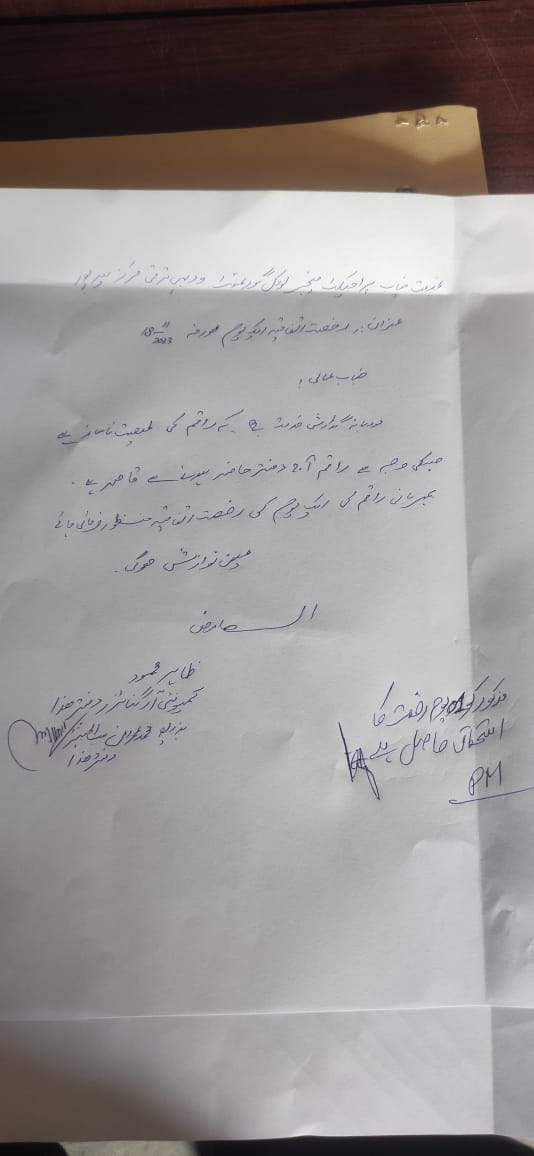 بخدمت جناب پراجیکٹ منیجر لوکل گورنمنٹ و دیہی ترقی مرکز میرپور
عنوان:۔ رخصت اتفاقیہ ایک یوم مورخہ 2023
جناب عالی!
مودبانہ گزارش خدمت ہے کہ راقم کی طبیعت ناساز ہے
جسکی وجہ سے راقم آج دفتر حاضر ہونے سے قاصر ہے۔
بمہربانی راقم کی ایک یوم کی رخصت اتفاقیہ منظور فرمائی جائے
عین نوازش ہوگی۔
العارض
محمود
کمیونٹی آرگنائزر دفتر ھذا
بذریعہ محمد
دفتر ھذا
مذکور کو 01 یوم رخصت کا
استحقاق حاصل ہے
PM